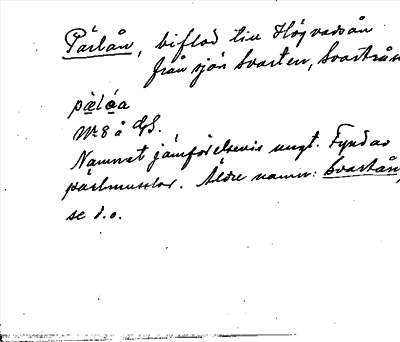 Pärlån, biflod till Högvadsån
från sjön Svarten, Svartrån
pæ̀lɷa
Nr 8 å GS.
Namnet jämförelsevis ungt. Fynd av
pärlmusslor. Äldre namn: Svartån,
se d.o.